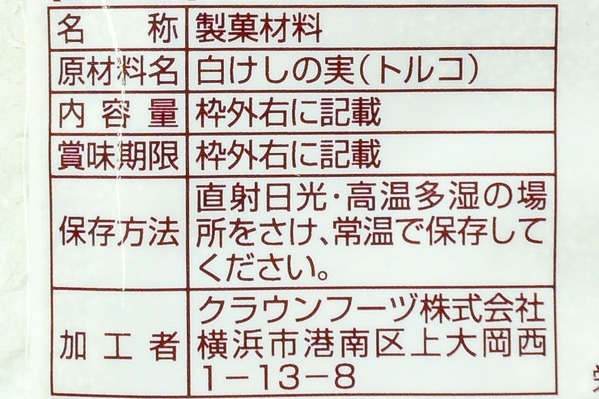 名称 製菓材料
原材料名 白けしの実（トルコ）
内容量 枠外右に記載
賞味期限 枠外右に記載
保存方法 直射日光・高温多湿の場
所をさけ、常温で保存して
ください。
加工者 クラウンフーヅ株式会社
横浜市港南区上大岡西
1－13－8